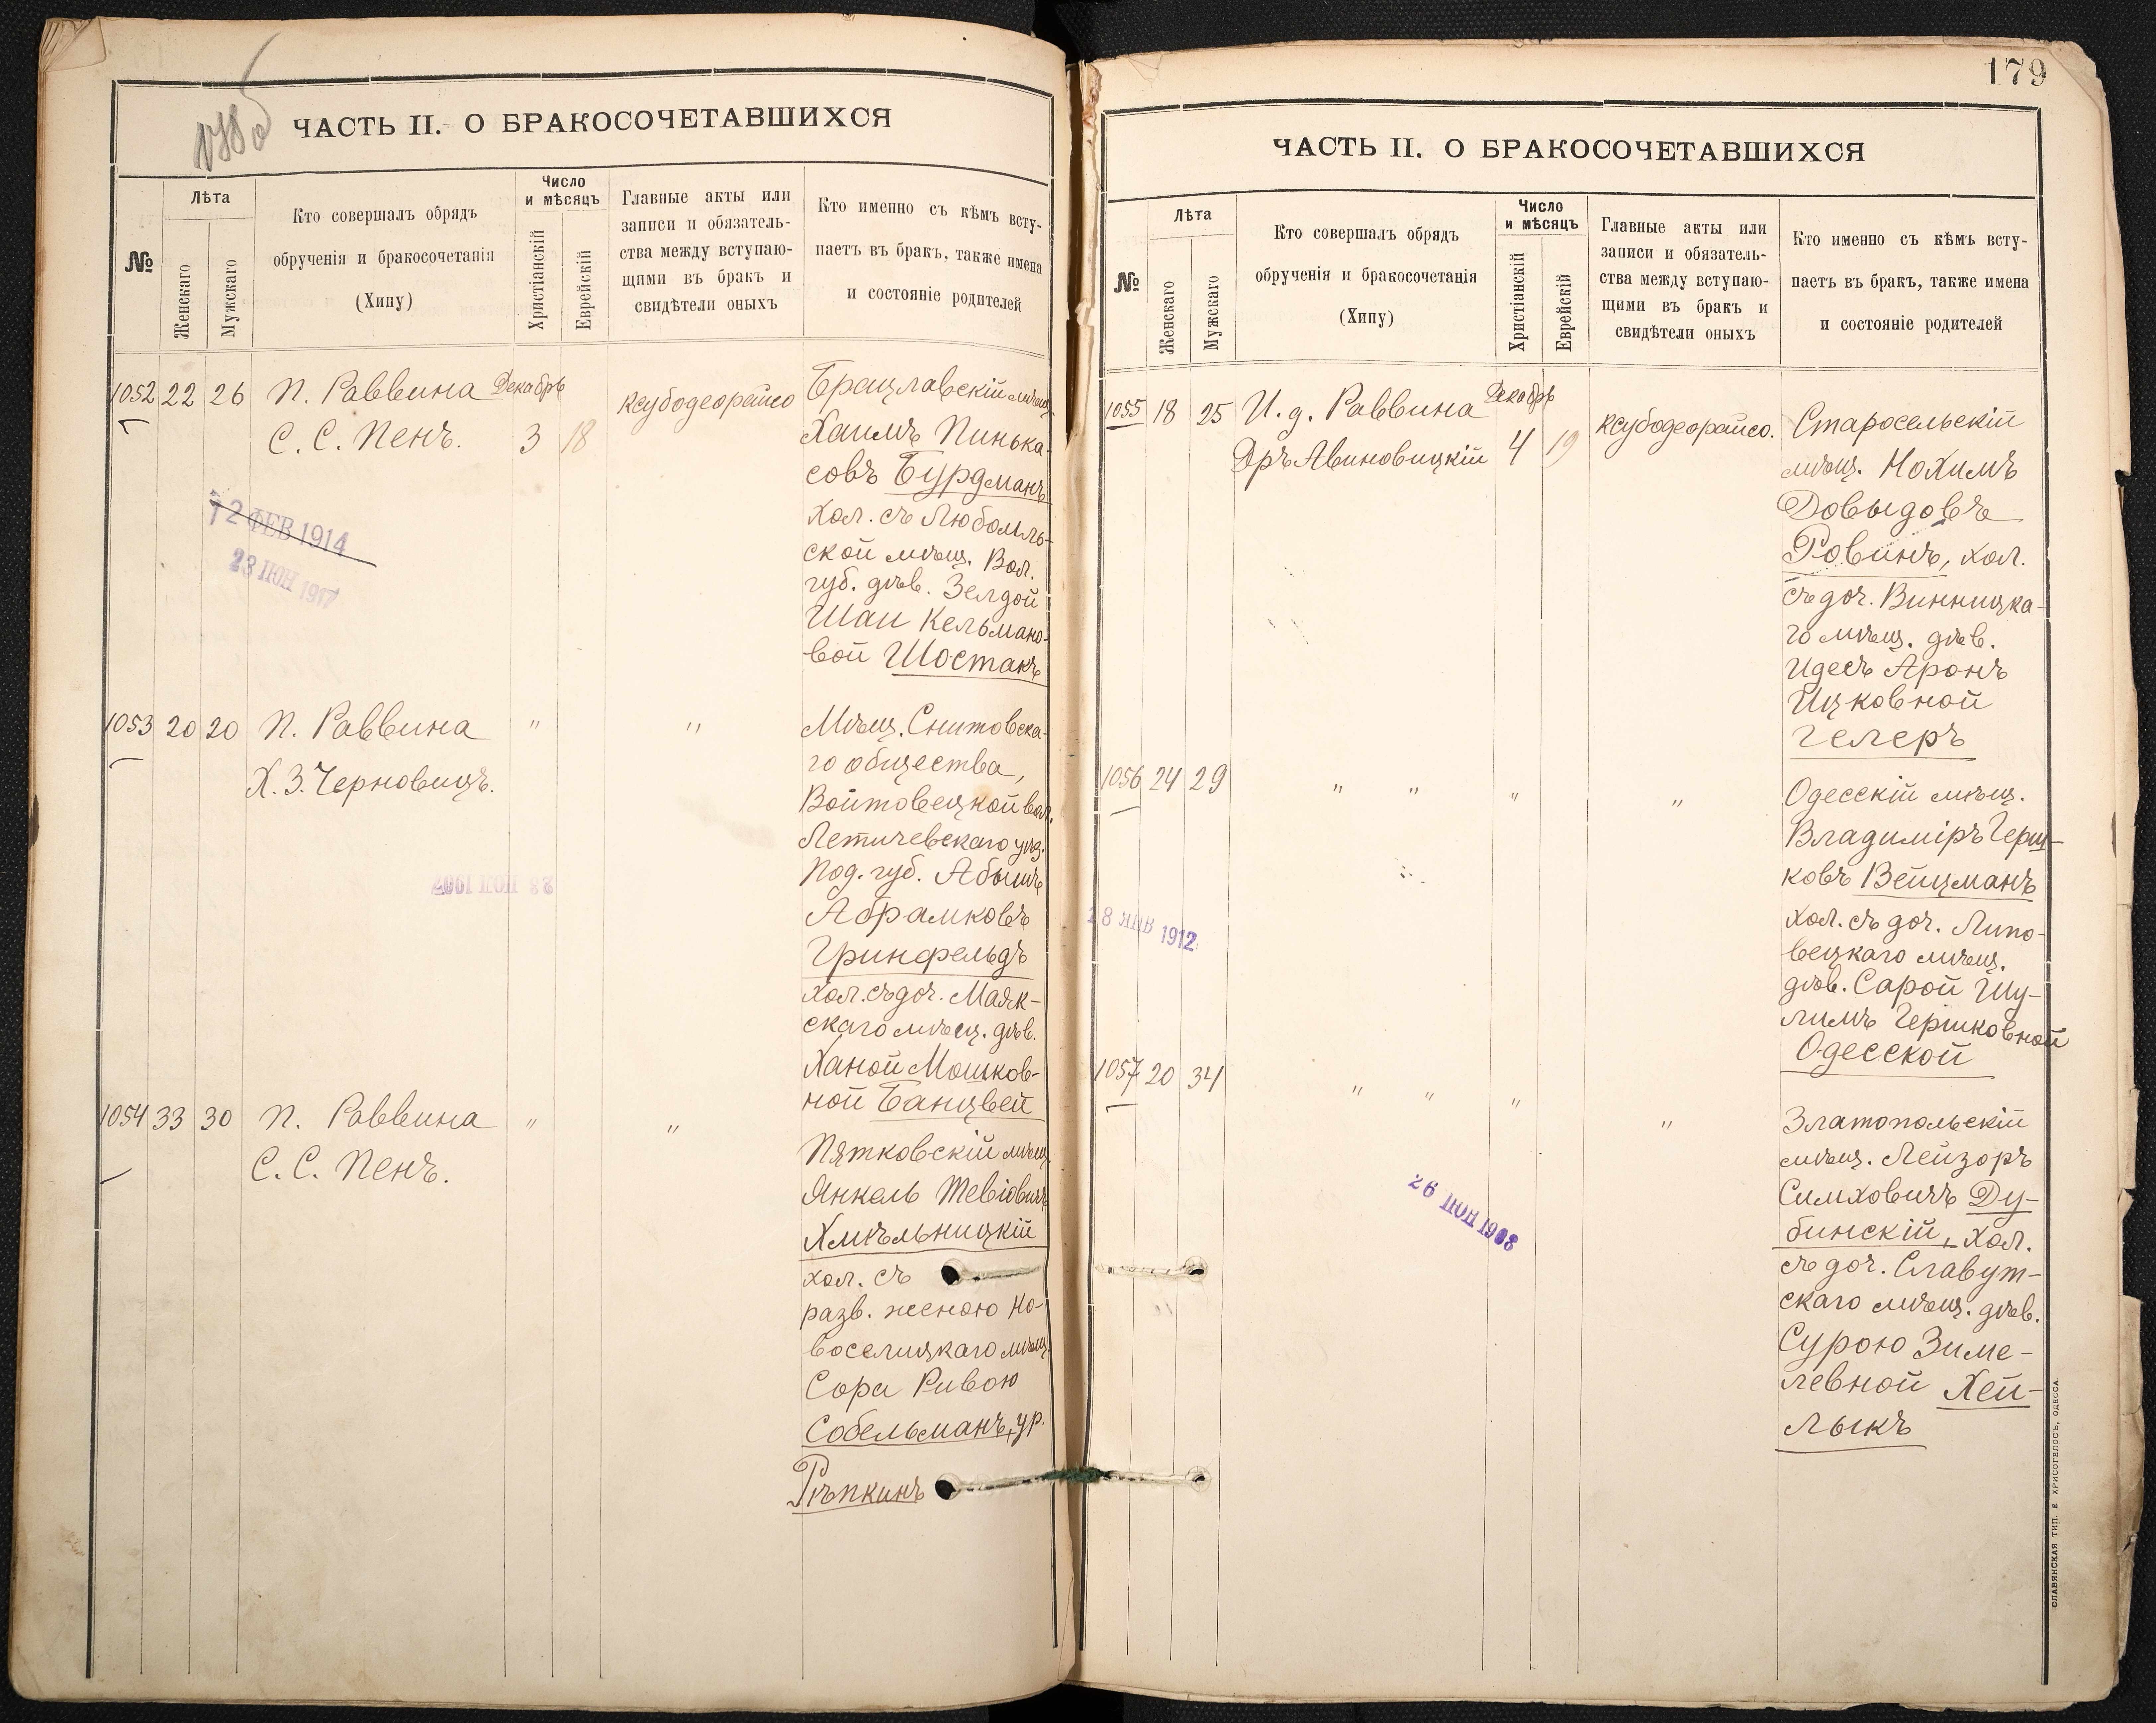 ЧАСТЬ II. О БРАКОСОЧЕТАВШИХСЯ
№
Лѣта
Женскаго
Мужскаго
Кто совершалъ обрядъ
обрученія и бракосочетанія
(Хипу)
Число
и мѣсяцъ
Христіанскій
Еврейскій
Главные акты или
записи и обязатель-
ства между вступаю-
щими въ бракъ и
свидѣтели оныхъ
Кто именно съ кѣмъ всту-
паетъ въ бракъ, также имена
и состояніе родителей
1052 22 26
П. Раввина
С. С. Пенъ.
Декабрь
3 18
ксубодеорайсо
Брацлавскій мѣщ.
Хаимъ Пинька-
совъ Бурдманъ
хол. съ Любомль-
ской мѣщ. Вол.
губ. дѣв. Зелдой
Шаи Кельмано-
вой Шостакъ
12 ФЕВ 1914
23 ІЮН 1917
1053 20 20
П. Раввина
Х. З. Черновицъ.
" "
Мѣщ. Снитовска-
го общества,
Войтовецкой вол.
Летичевскаго уѣз.
Под. губ. Абышъ
Абрамковъ
Гринфельдъ
хол. съ доч. Маяк-
скаго мѣщ. дѣв.
Ханой Мошков-
ной Банцвей
23 ІЮН 1907
1054 33 30
П. Раввина
С. С. Пенъ.
" "
Пятковскій мѣщ.
Янкель Тевіовичъ
Хмѣльницкій
хол. съ
разв. женою Но-
воселицкаго мѣщ.
Сора Ривою
Собельманъ, ур.
Рѣпкинъ
179
ЧАСТЬ II. О БРАКОСОЧЕТАВШИХСЯ
№
Лѣта
Женскаго
Мужскаго
Кто совершалъ обрядъ
обрученія и бракосочетанія
(Хипу)
Число
и мѣсяцъ
Христіанскій
Еврейскій
Главные акты или
записи и обязатель-
ства между вступаю-
щими въ бракъ и
свидѣтели оныхъ
Кто именно съ кѣмъ всту-
паетъ въ бракъ, также имена
и состояніе родителей
1055 18 25
И. д. Раввина
Дръ Авиновицкій
Декабрь
4 19
ксубодеорайсо.
Старосельскій
мѣщ. Нохимъ
Довыдовъ
Ровинъ, хол.
съ доч. Винницка-
го мѣщ. дѣв.
Идесъ Аронъ
Ицковной
Гелеръ
1056 24 29
" " " "
Одесскій мѣщ.
Владиміръ Герш-
ковъ Вейцманъ
хол. съ доч. Липо-
вецкаго мѣщ.
дѣв. Сарой Шу-
лимъ Гершковной
Одесской
18 ЯНВ 1912
1057 20 34
" " " "
Златопольскій
мѣщ. Лейзоръ
Симховичъ Ду-
бинскій, хол.
съ доч. Славут-
скаго мѣщ. дѣв.
Сурою Зиме-
левной Хей-
лыкъ
26 ІЮН 1908
СЛАВЯНСКАЯ ТИП. Е. ХРИСОГЕЛОСЪ, ОДЕССА